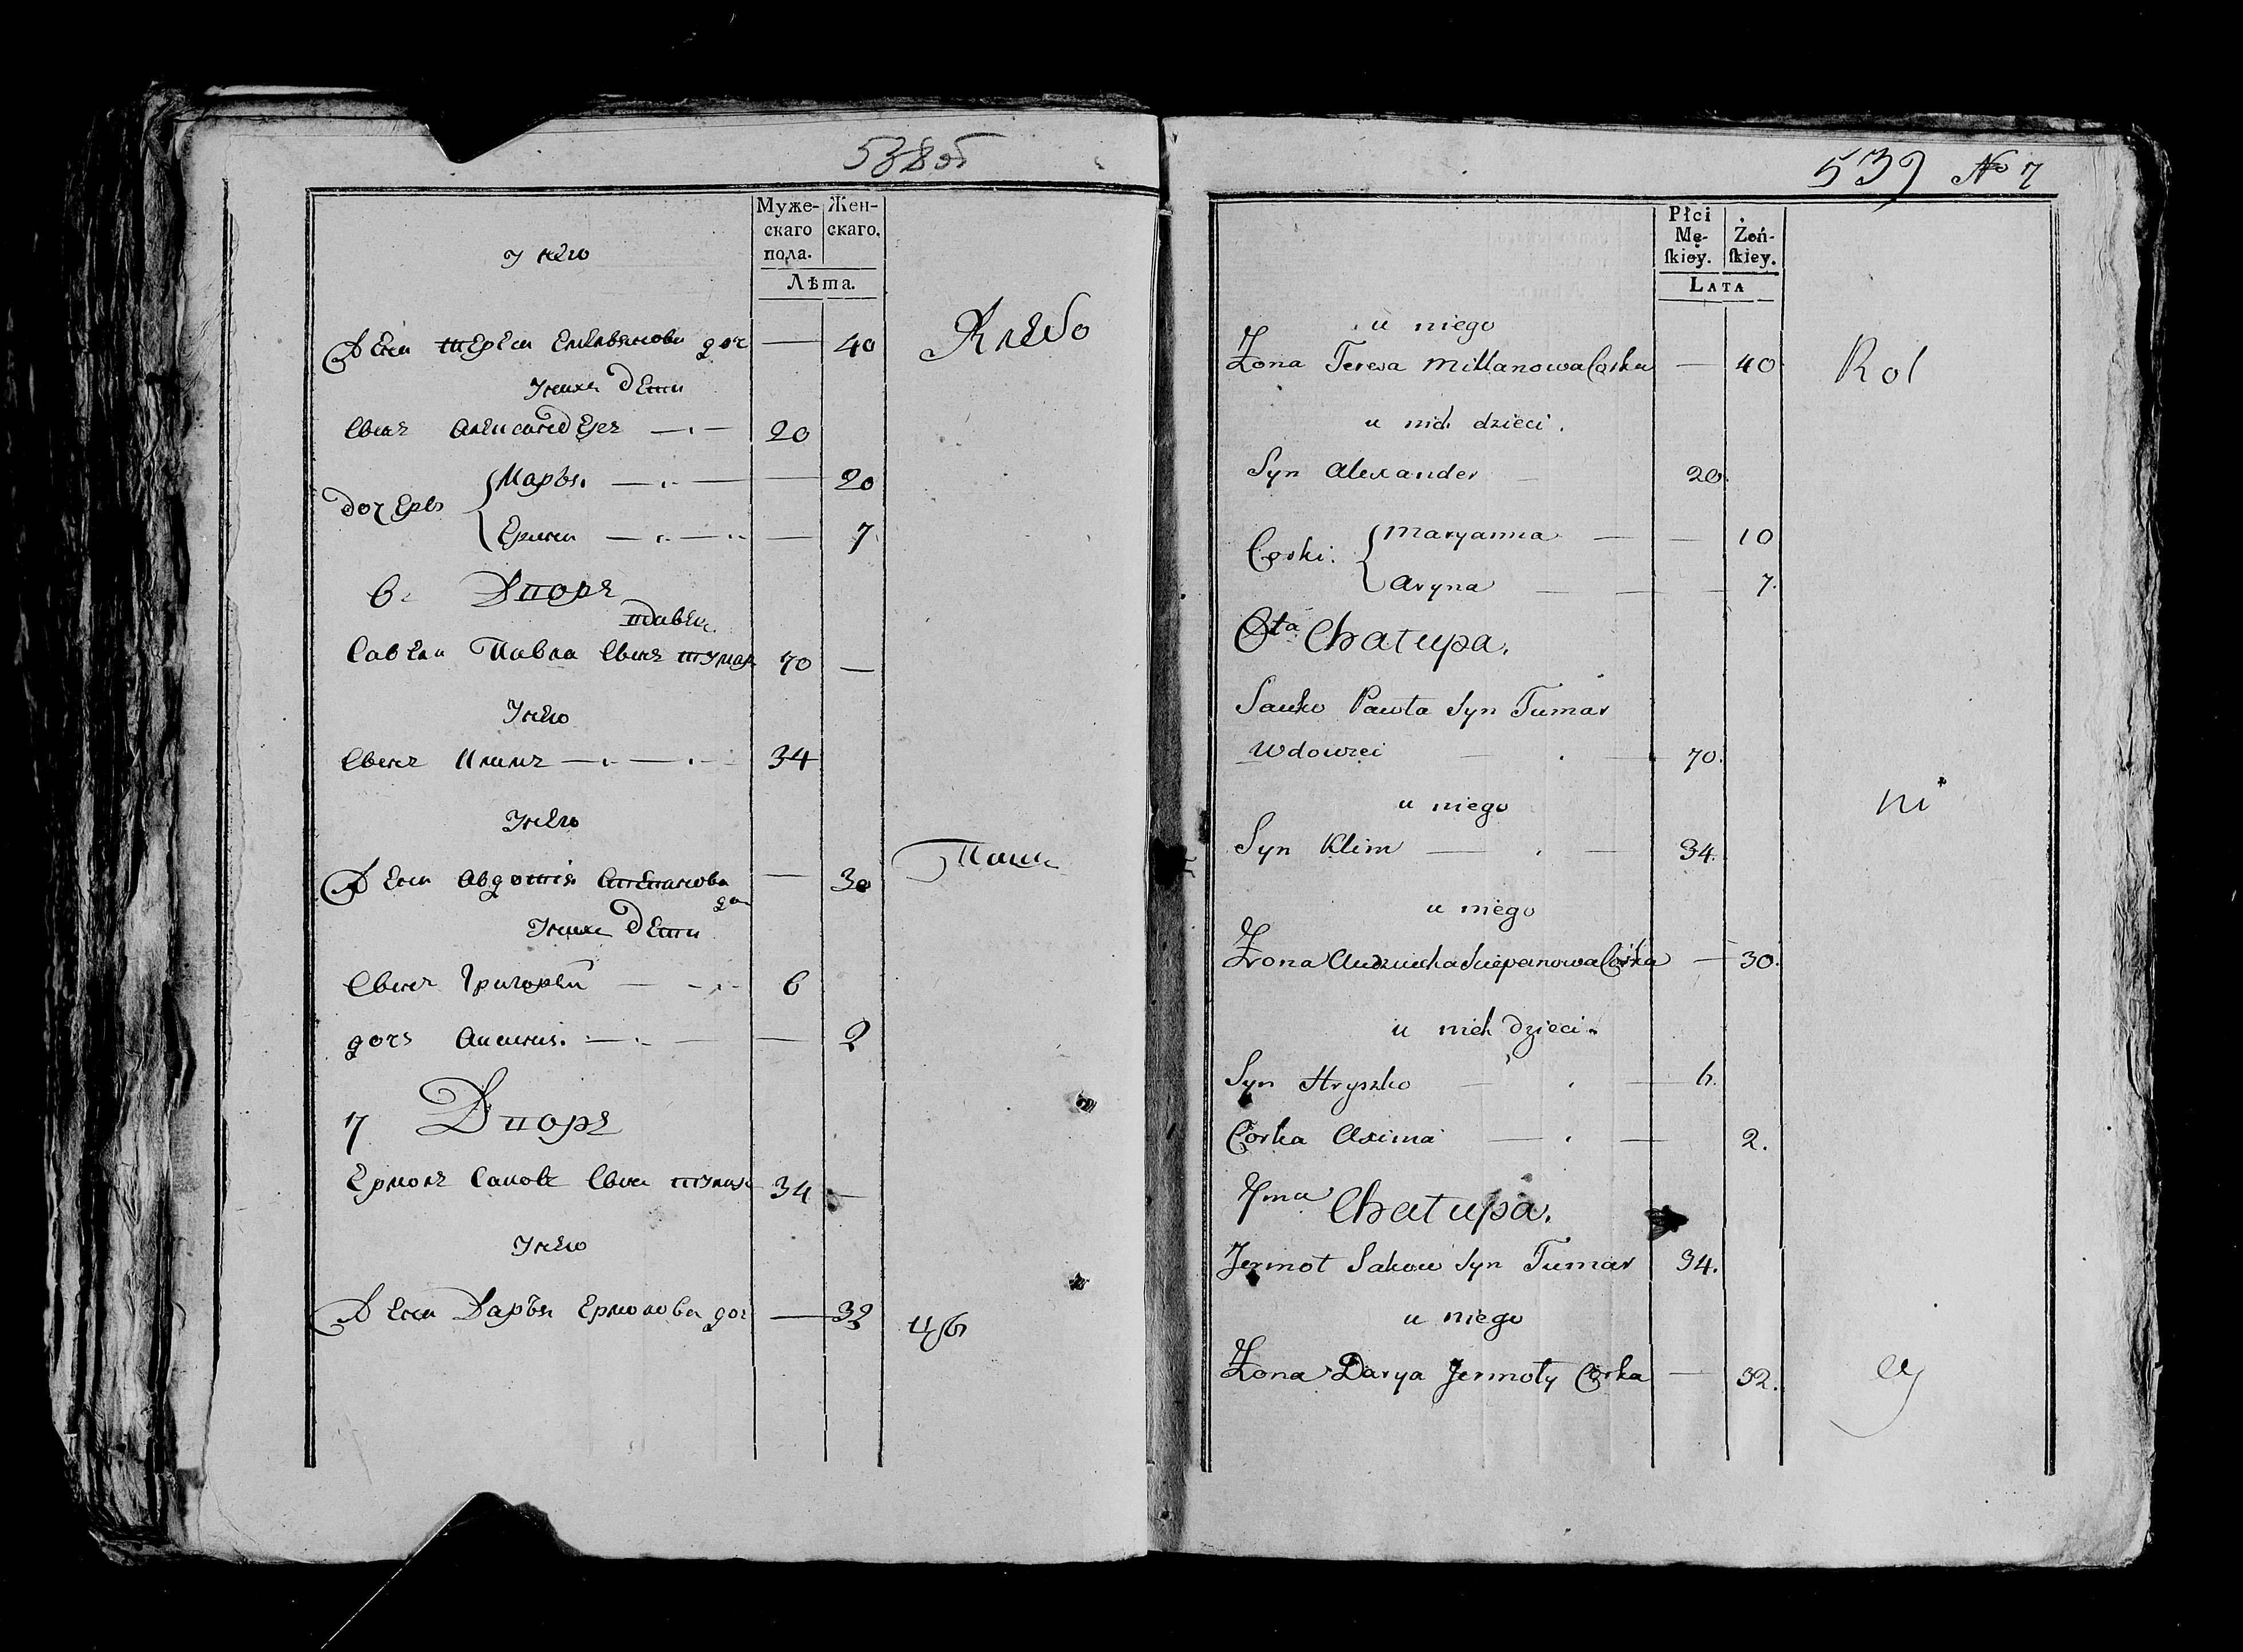 538об
Муже-
скаго
пола.
Жен-
скаго.
Лѣта.
у него
Жена Тереса Емельянова доч — 40
Хлебо
у них дети
Сынъ Александеръ — 20
дочерь { Марья — 20
Ерина — 7
6. Дворъ
Савели Павла Сынъ Тумар 70 —
вдовец
у него
Сынъ Климъ — 34
у него
Жена Авдотія Степанова доч — 30
Паш
у них дети
Сынъ Григорей — 6
дочь Аксинія — 2
7 Дворъ
Ермолъ Сакове Сынъ Тумар 34 —
у него
Жена Дарья Ермолова доч — 32
цы
539 № 7
Płci
Mę-
ſkiey.
Żeń-
ſkiey.
LATA
u niego
Żona Teresa Millanowa Corka — 40
Rol
u nich dzieci.
Syn Alexander 20.
Corki. { Maryanna — 10
Aryna — 7.
6ta Chałupa.
Sawko Pawła Syn Tumar
Wdowiec 70.
u niego
Syn Klim — 34.
ni
u niego
Żona Audziucha Sciepanowa Corka — 30.
u nich dzieci.
Syn Hryszko — 6.
Corka Axima — 2.
7ma Chałupa.
Jermoł Sakow Syn Tumar 34.
u niego
Żona Darya Jermoły Corka — 32.
cy